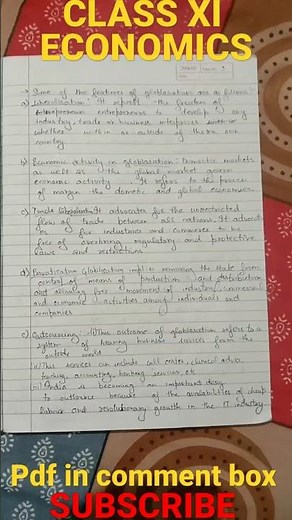 CLASS XI
ECONOMICS
→ Some of the features of globalisation are as follows:
a) Liberalisation: It refers the freedom of
entrepreneurs to develop any
industry, trade or business
whether within or outside of the own
country
b) Economic activity in globalisation: Domestic markets
as well as the global market govern
economic activity. It refers to the process
of merging the domestic and global economies
c) Trade It advocates for the unrestricted
flow of trade between all nations. It advocates
for industries and commerce to be
free of regulatory and protective
laws and restrictions
d) Privatization Globalisation implies removing the state from
control of means of production and distribution
and allowing free movement of industry, commercial
and economic activities among individuals and
companies
e) Outsourcing: This outcome of globalisation refers to a
system of hiring business services from the
outside world
(i) This services can include call center, clinical advice,
teaching, accounting, banking services, etc
(ii) India is becoming an important
to outsource because of the availabilities of cheap
labour and revolutionary growth in the IT industry.
Pdf in comment box
SUBSCRIBE